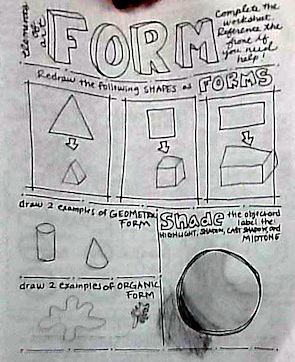 elements of art
FORM
Complete the
worksheet.
Reference the
if
you need
help!
Redraw the following SHAPES as FORMS
draw 2 examples of GEOMETRIC
FORM
Shade the object and
label the:
HIGHLIGHT, SHADOW, CAST SHADOW, and
MIDTONE
draw 2 examples of ORGANIC
FORM